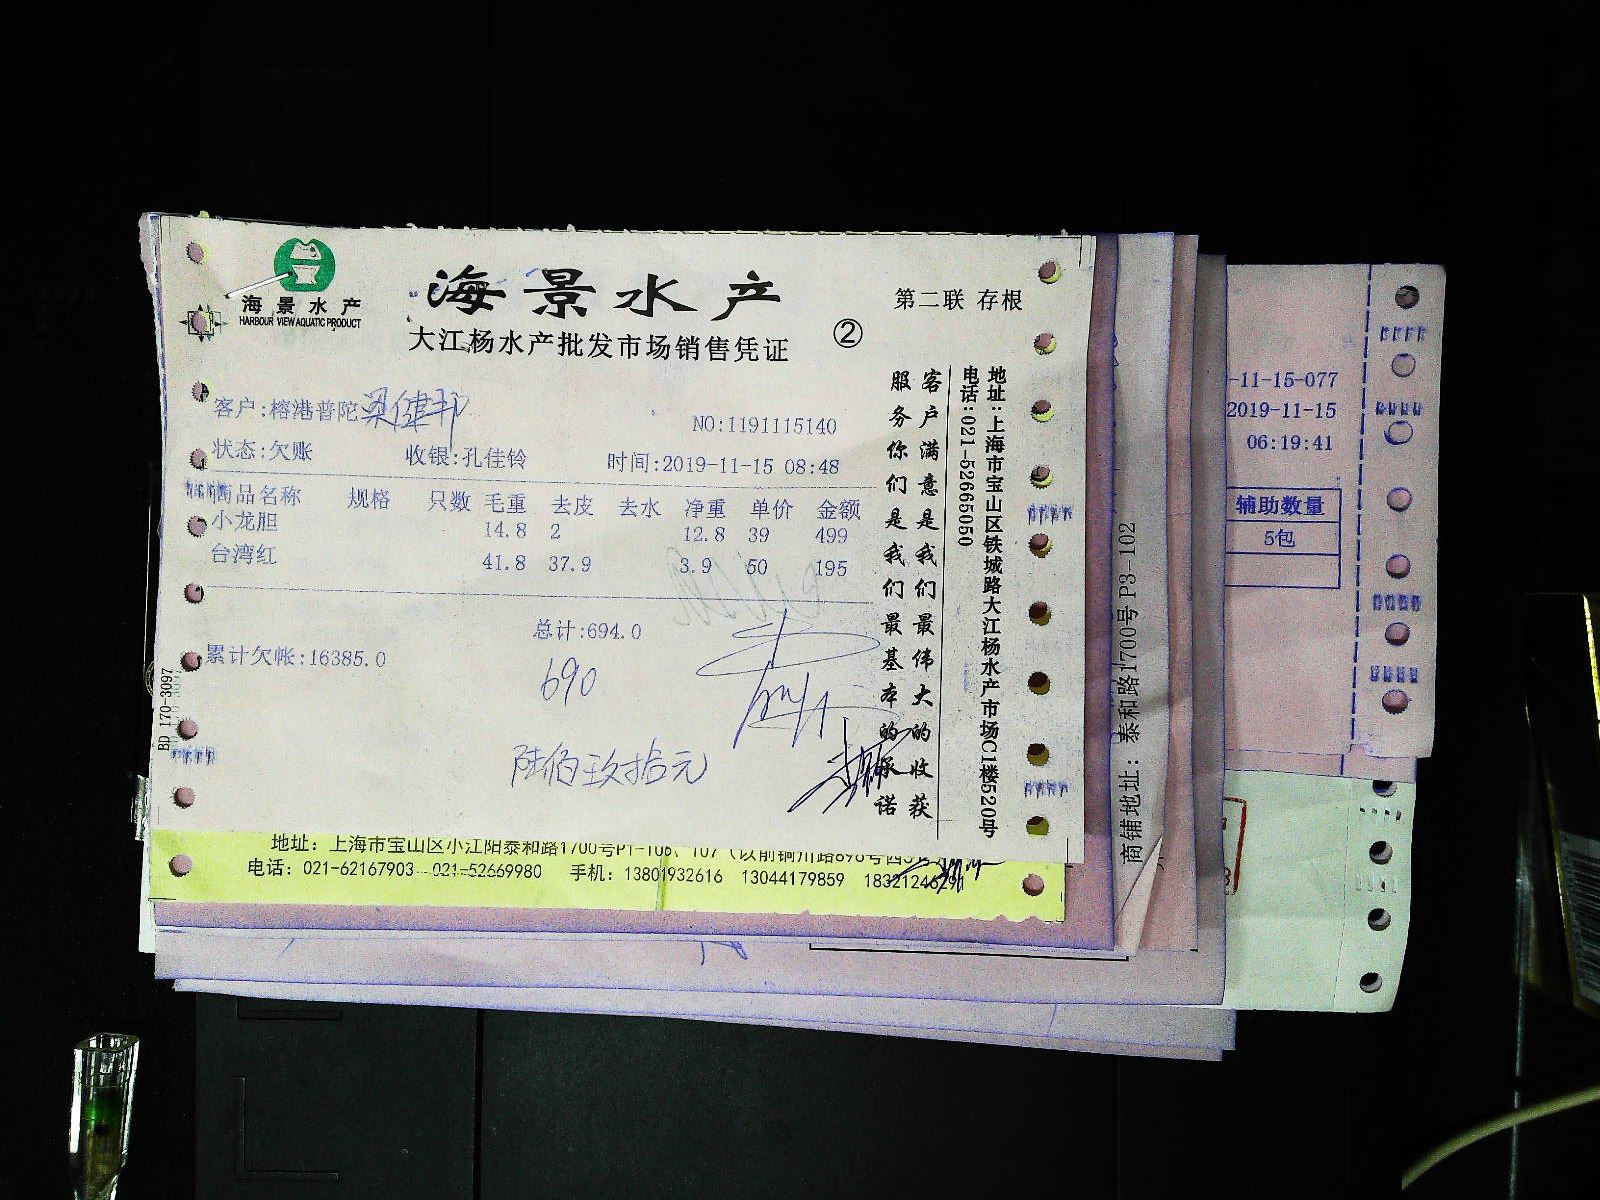 海景水产
HARBOUR VIEW AQUATIC PRODUCT
海景水产
大江杨水产批发市场销售凭证
②
第二联 存根
客户:榕港普陀梁健邦
NO:1191115140
状态:欠账 收银:孔佳铃 时间:2019-11-15 08:48
商品名称 规格 只数 毛重 去皮 去水 净重 单价 金额
小龙胆 14.8 2 12.8 39 499
台湾红 41.8 37.9 3.9 50 195
总计:694.0
累计欠帐:16385.0
690
陆佰玖拾元
客户满意是我们最伟大的收获
服务你们是我们最基本的承诺
地址:上海市宝山区铁城路大江杨水产市场C1楼520号
电话:021-52665050
BD 170-3097
地址：上海市宝山区小江阳泰和路1700号P1-106、107（以前铜川路898号西
电话：021-62167903 021-52669980 手机：13801932616 13044179859
商铺地址：泰和路1700号P3-102
-11-15-077
2019-11-15
06:19:41
辅助数量
5包